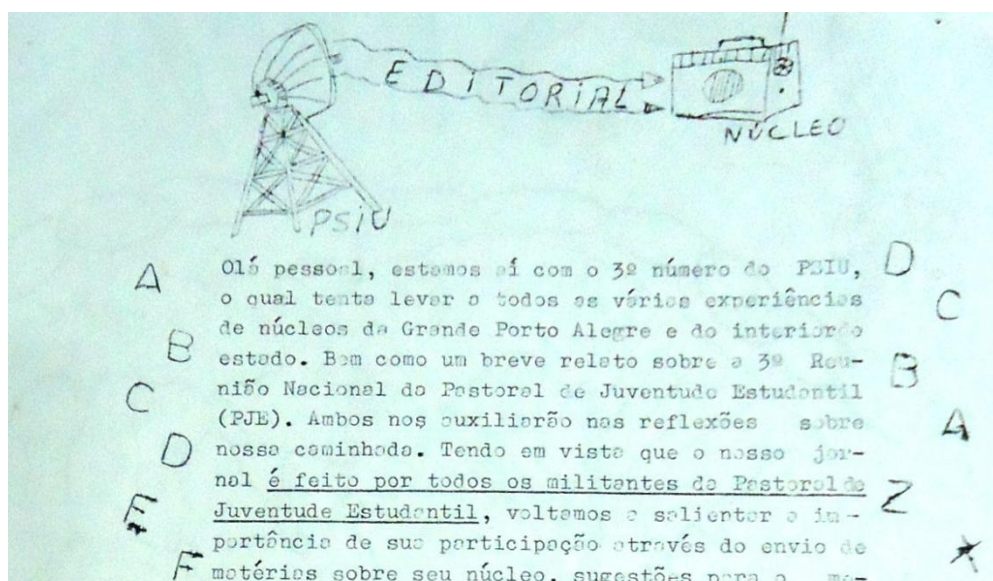 EDITORIAL
NÚCLEO
PSIU
A Olá pessoal, estamos aí com o 3º número do PSIU, D
o qual tenta levar a todos as várias experiências C
de núcleos da Grande Porto Alegre e do interior do
B estado. Bem como um breve relato sobre a 3ª Reu- B
C nião Nacional da Pastoral de Juventude Estudantil
(PJE). Ambos nos auxiliarão nas reflexões sobre A
D nossa caminhada. Tendo em vista que o nosso jor-
nal é feito por todos os militantes da Pastoral de Z
E Juventude Estudantil, voltamos a salientar a im-
portância de sua participação através do envio de X
F matérias sobre seu núcleo, sugestões para o